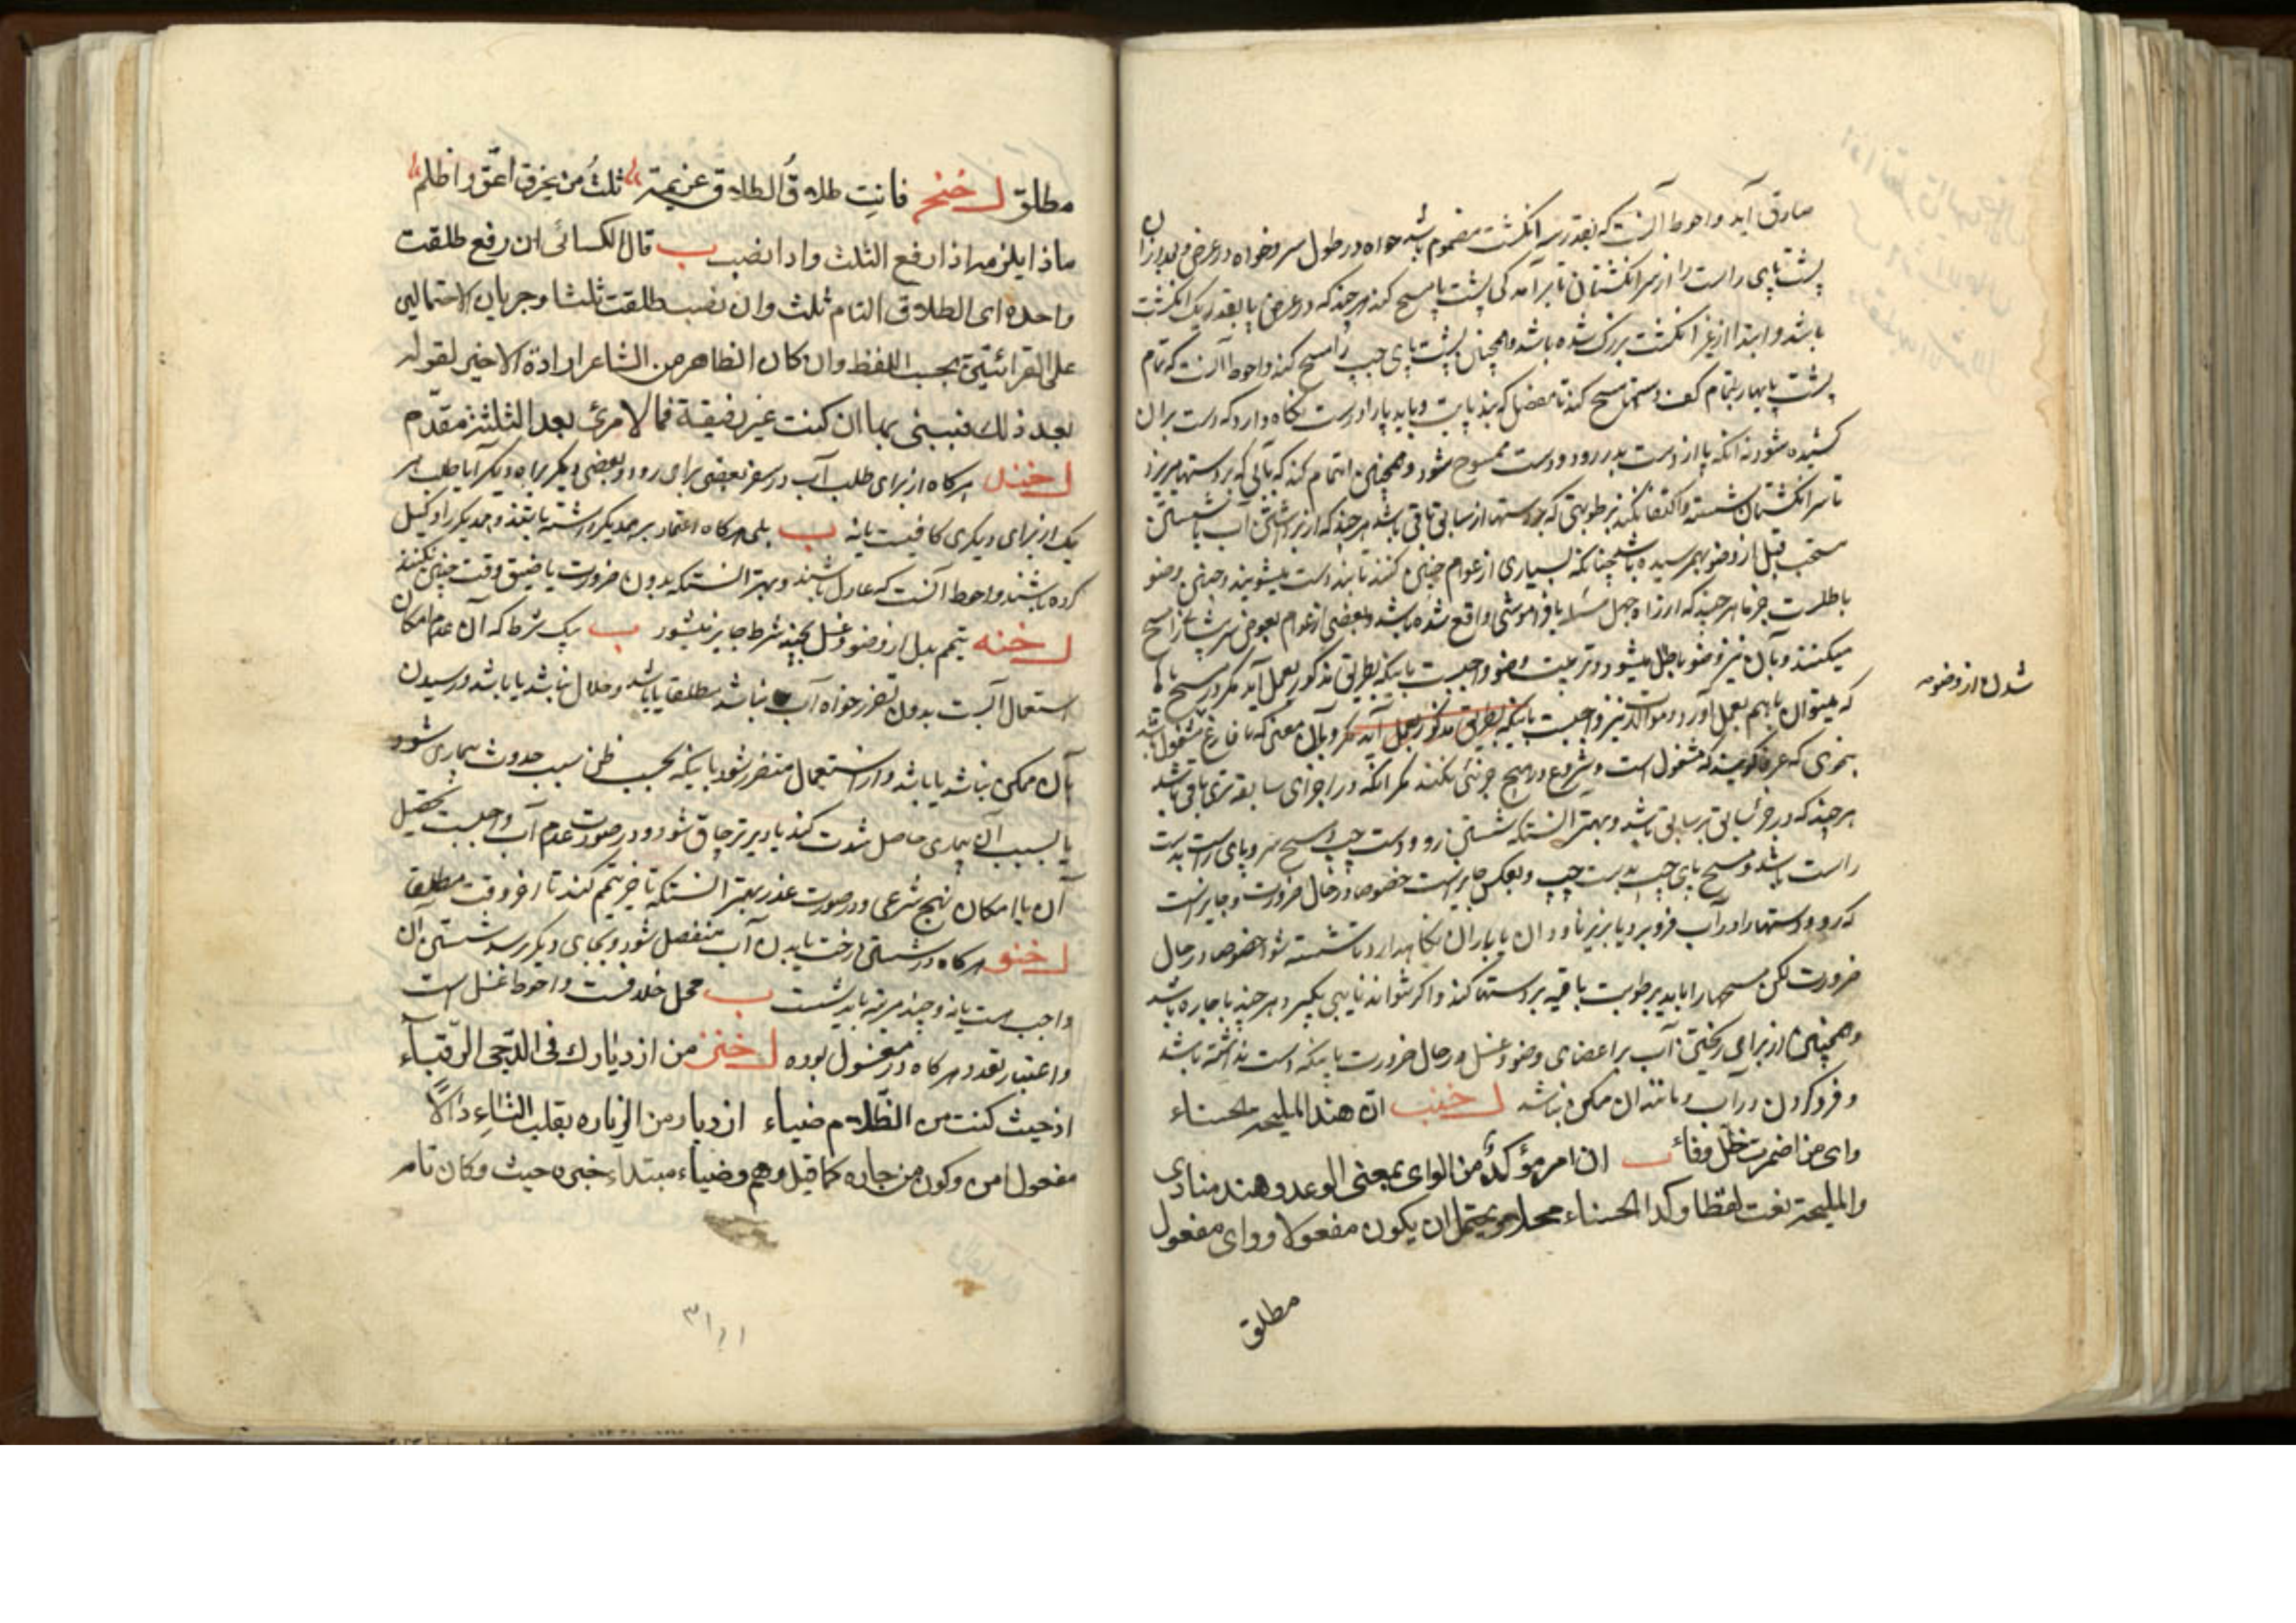 صادق آید و احوط آنست که بقدر سه انگشت مضموم باشد خواه در طول سر و خواه در عرض و بعد از آن
پشت پای راست را از سر انگشتان تا برآمدگی پشت پا مسح کند هر چند که در عرض پا بقدر یک انگشت
باشد و ابتدا از غیر انگشت بزرک شده باشد و همچنان پشت پای چپ را مسح کند و احوط آنست که تمام
پشت پاها را بتمام کف دستها مسح کند تا مفصل که بند پاست و باید پا را درست نگاه دارد که دست بر آن
کشیده شود نه آنکه پا از دست بدر رود و دست ممسوح شود و همچنین اهتمام کند که تا آبی که بر دستها میریزد
تا سر انگشتان شسته و اکتفا نکند برطوبتی که در دستها از سابق باقی باشد هر چند که از برداشتن آب با شستن
مستحب قبل از وضو بهم رسیده باشد چنانکه بسیاری از عوام چنین کنند تا بند دست میشویند و چنین وضو
باطلست جزما هر چند که از راه جهل مسئله یا فراموشی واقع شده باشد و بعضی از عوام بعوض سر پیشانی را مسح
میکنند و بآن نیز وضو باطل میشود و ترتیب وضو واجبست باینکه بطریق مذکور بعمل آید مگر در مسح پاها
که میتوان باهم بعمل آورد و موالات نیز واجبست باینکه بطریق مذکور بعمل آید مگر و بآن معنی که تا فارغ مشغول باشد
بنحوی که عرفا گویند که مشغول است و شروع در هیچ جزئی نکند مگر آنکه در اجزای سابقه تری باقی باشد
هر چند که در جزء سابق بر سابق باشد و بهتر آنستکه شستن رو و دست چپ و مسح سر و پای راست بدست
راست باشد و مسح پای چپ بدست چپ و بعکس جایز است خصوصا در حال ضرورت و جایز است
که رو و دستها را در آب فرو برد یا بزیر ناودان یا باران نگاهدارد تا شسته شود خصوصا در حال
ضرورت لکن مسحها را باید برطوبت باقیه بر دستها کند و اگر نتواند نایبی بگیرد هر چند باجاره باشد
و همچنین از برای ریختن آب بر اعضای وضو و غسل در حال ضرورت باینکه دست نداشته باشد
و فرو کردن در آب و مانند آن ممکن نباشد ل خنب انّ هند الملیحة الحسناء
وای من اضمرت لخل وفاء ب ان امر مؤکد من الوای بمعنی الوعد و هند منادی
والملیحة نعت لفظا وکذا الحسناء محلا ویحتمل ان یکون مفعولا ووای مفعول
مطلق
شدن از وضو
مطلق ل خنج فانت طلاق والطلاق عزیمة ثلث ومن یخرق اعق واظلم
ماذا یلزمه اذا رفع الثلث واذا نصب ب قال الکسائی ان رفع طلقت
واحدة ای الطلاق التام ثلث وان نصب طلقت ثلثا وجریان الاحتمالین
علی القرائتین بحسب اللفظ وان کان الظاهر من الشاعر ارادة الاخیر لقوله
بعد ذلک فبینی بها ان کنت غیر رفیقة فما لامرئ بعد الثلثة مقدّم
ل خند هرکاه از برای طلب آب در سفر بعضی براهی رود و بعضی دیگر براه دیگر آیا طلب هر
یک از برای دیگری کافیست یا نه ب بلی هرکاه اعتماد بر همدیگر داشته باشند و همدیگر را وکیل
کرده باشند و احوط آنست که عادل باشند و بهتر آنستکه بدون ضرورت یا ضیق وقت چنین نکنند
ل خنه تیمم بدل از وضو و غسل بچند شرط جایز میشود ب بیک شرط که آن عدم امکان
استعمال آبست بدون تضرر خواه آب نباشد مطلقا یا باشد و حلال نباشد یا باشد و رسیدن
بآن ممکن نباشد یا باشد و از استعمال متضرر شود باینکه بحسب ظن سبب حدوث بیماری شود
یا بسبب آن بیماری حاصل شدت کند یا دیرتر چاق شود و در صورت عدم آب واجبست تحصیل
آن با امکان بنهج شرعی و در صورت عذر بهتر آنستکه تاخیر تیمم کند تا آخر وقت مطلقا
ل خنو هرکاه در شستن رخت یا بدن آب منفصل شود و بجای دیگر رسد شستن آن
واجب است یا نه و چند مرتبه باید شست ب محل خلافست و احوط غسل است
و اعتبار تعدد هرکاه در مغسول بوده ل خنز من ازدیارک فی الدّجی الرّقباء
اذ حیث کنت من الظّلام ضیاء ازدیار من الزیاره بقلب التاء دالًا
مفعول امن وکون من جاره کما قیل وهم وضیاء مبتداء خبره حیث وکان تامه